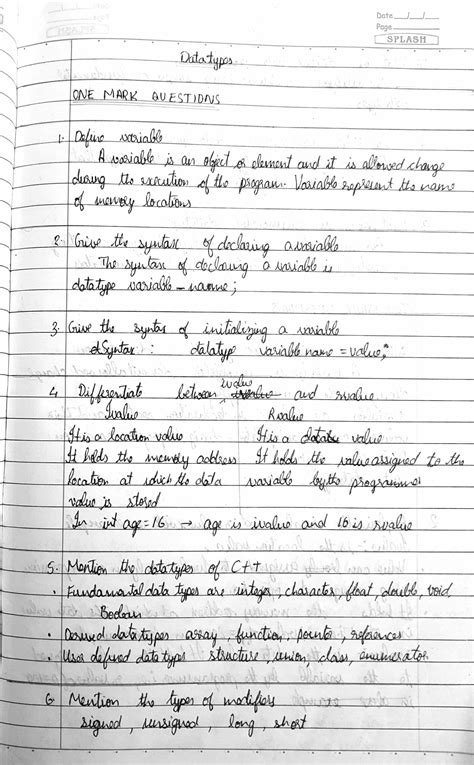 Date __/__/__
Page
SPLASH
Datatypes
ONE MARK QUESTIONS
1. Define variable
A variable is an object or element and it is allowed change
during the execution of the program. Variable represent the name
of memory locations
2. Give the syntax of declaring a variable
The syntax of declaring a variable is
datatype variable - name;
3. Give the syntax of initializing a variable
Syntax : datatype variable name = value;
4. Differentiate between lvalue and rvalue
lvalue Rvalue
It is a location value It is a data value
It holds the memory address It holds the value assigned to the
location at which the data variable by the programmer
value is stored
In int age = 16 → age is lvalue and 16 is rvalue
5. Mention the datatypes of C++
· Fundamental data types are integer, character, float, double, void,
Boolean
· Derived datatypes array, function, pointer, references
· User defined datatypes structure, union, class, enumerator
6 Mention the types of modifiers
signed, unsigned, long, short